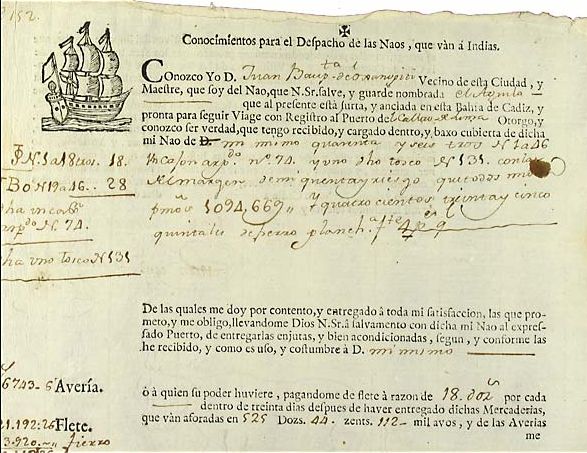 152.
Conocimientos para el Despacho de las Naos, que vàn à Indias.
Conozco Yo D. Juan Baup.ta de Vecino de esta Ciudad, y
Maestre, que soy del Nao, que N. Sr. salve, y guarde nombrada el
que al presente está surta, y anclada en esta Bahia de Cadiz, y
pronta para seguir Viage con Registro al Puerto del Callao de Lima Otorgo, y
conozco ser verdad, que tengo recibido, y cargado dentro, y baxo cubierta de dicha
mi Nao de D. mi mimo quarenta y seis tros N. 1 a 46
N. 1 a 18 tros. 18.
no 74. y uno dho tosco N. 131.
No 19 a 46.. 28
el margen de mi quenta y riesgo
dha un
1094,669 y quatro cientos treinta y cinco
N. 74.
quintales de fierro planch.
dha uno tosco N. 131
De las quales me doy por contento, y entregado à toda mi satisfaccion, las que pro-
meto, y me obligo, llevandome Dios N. Sr. à salvamento con dicha mi Nao al expres-
sado Puerto, de entregarlas enjutas, y bien acondicionadas, segun, y conforme las
he recibido, y como es uso, y costumbre à D. mi mismo
6743-6 Avería.
ò à quien su poder huviere, pagandome de flete à razon de 18. doz.s por cada
dentro de treinta dias despues de haver entregado dichas Mercaderias,
21.192:26 Flete.
que vàn aforadas en 525 Dozs. 44. zents. 112 mil avos, y de las Averias
3.920. fierro
me